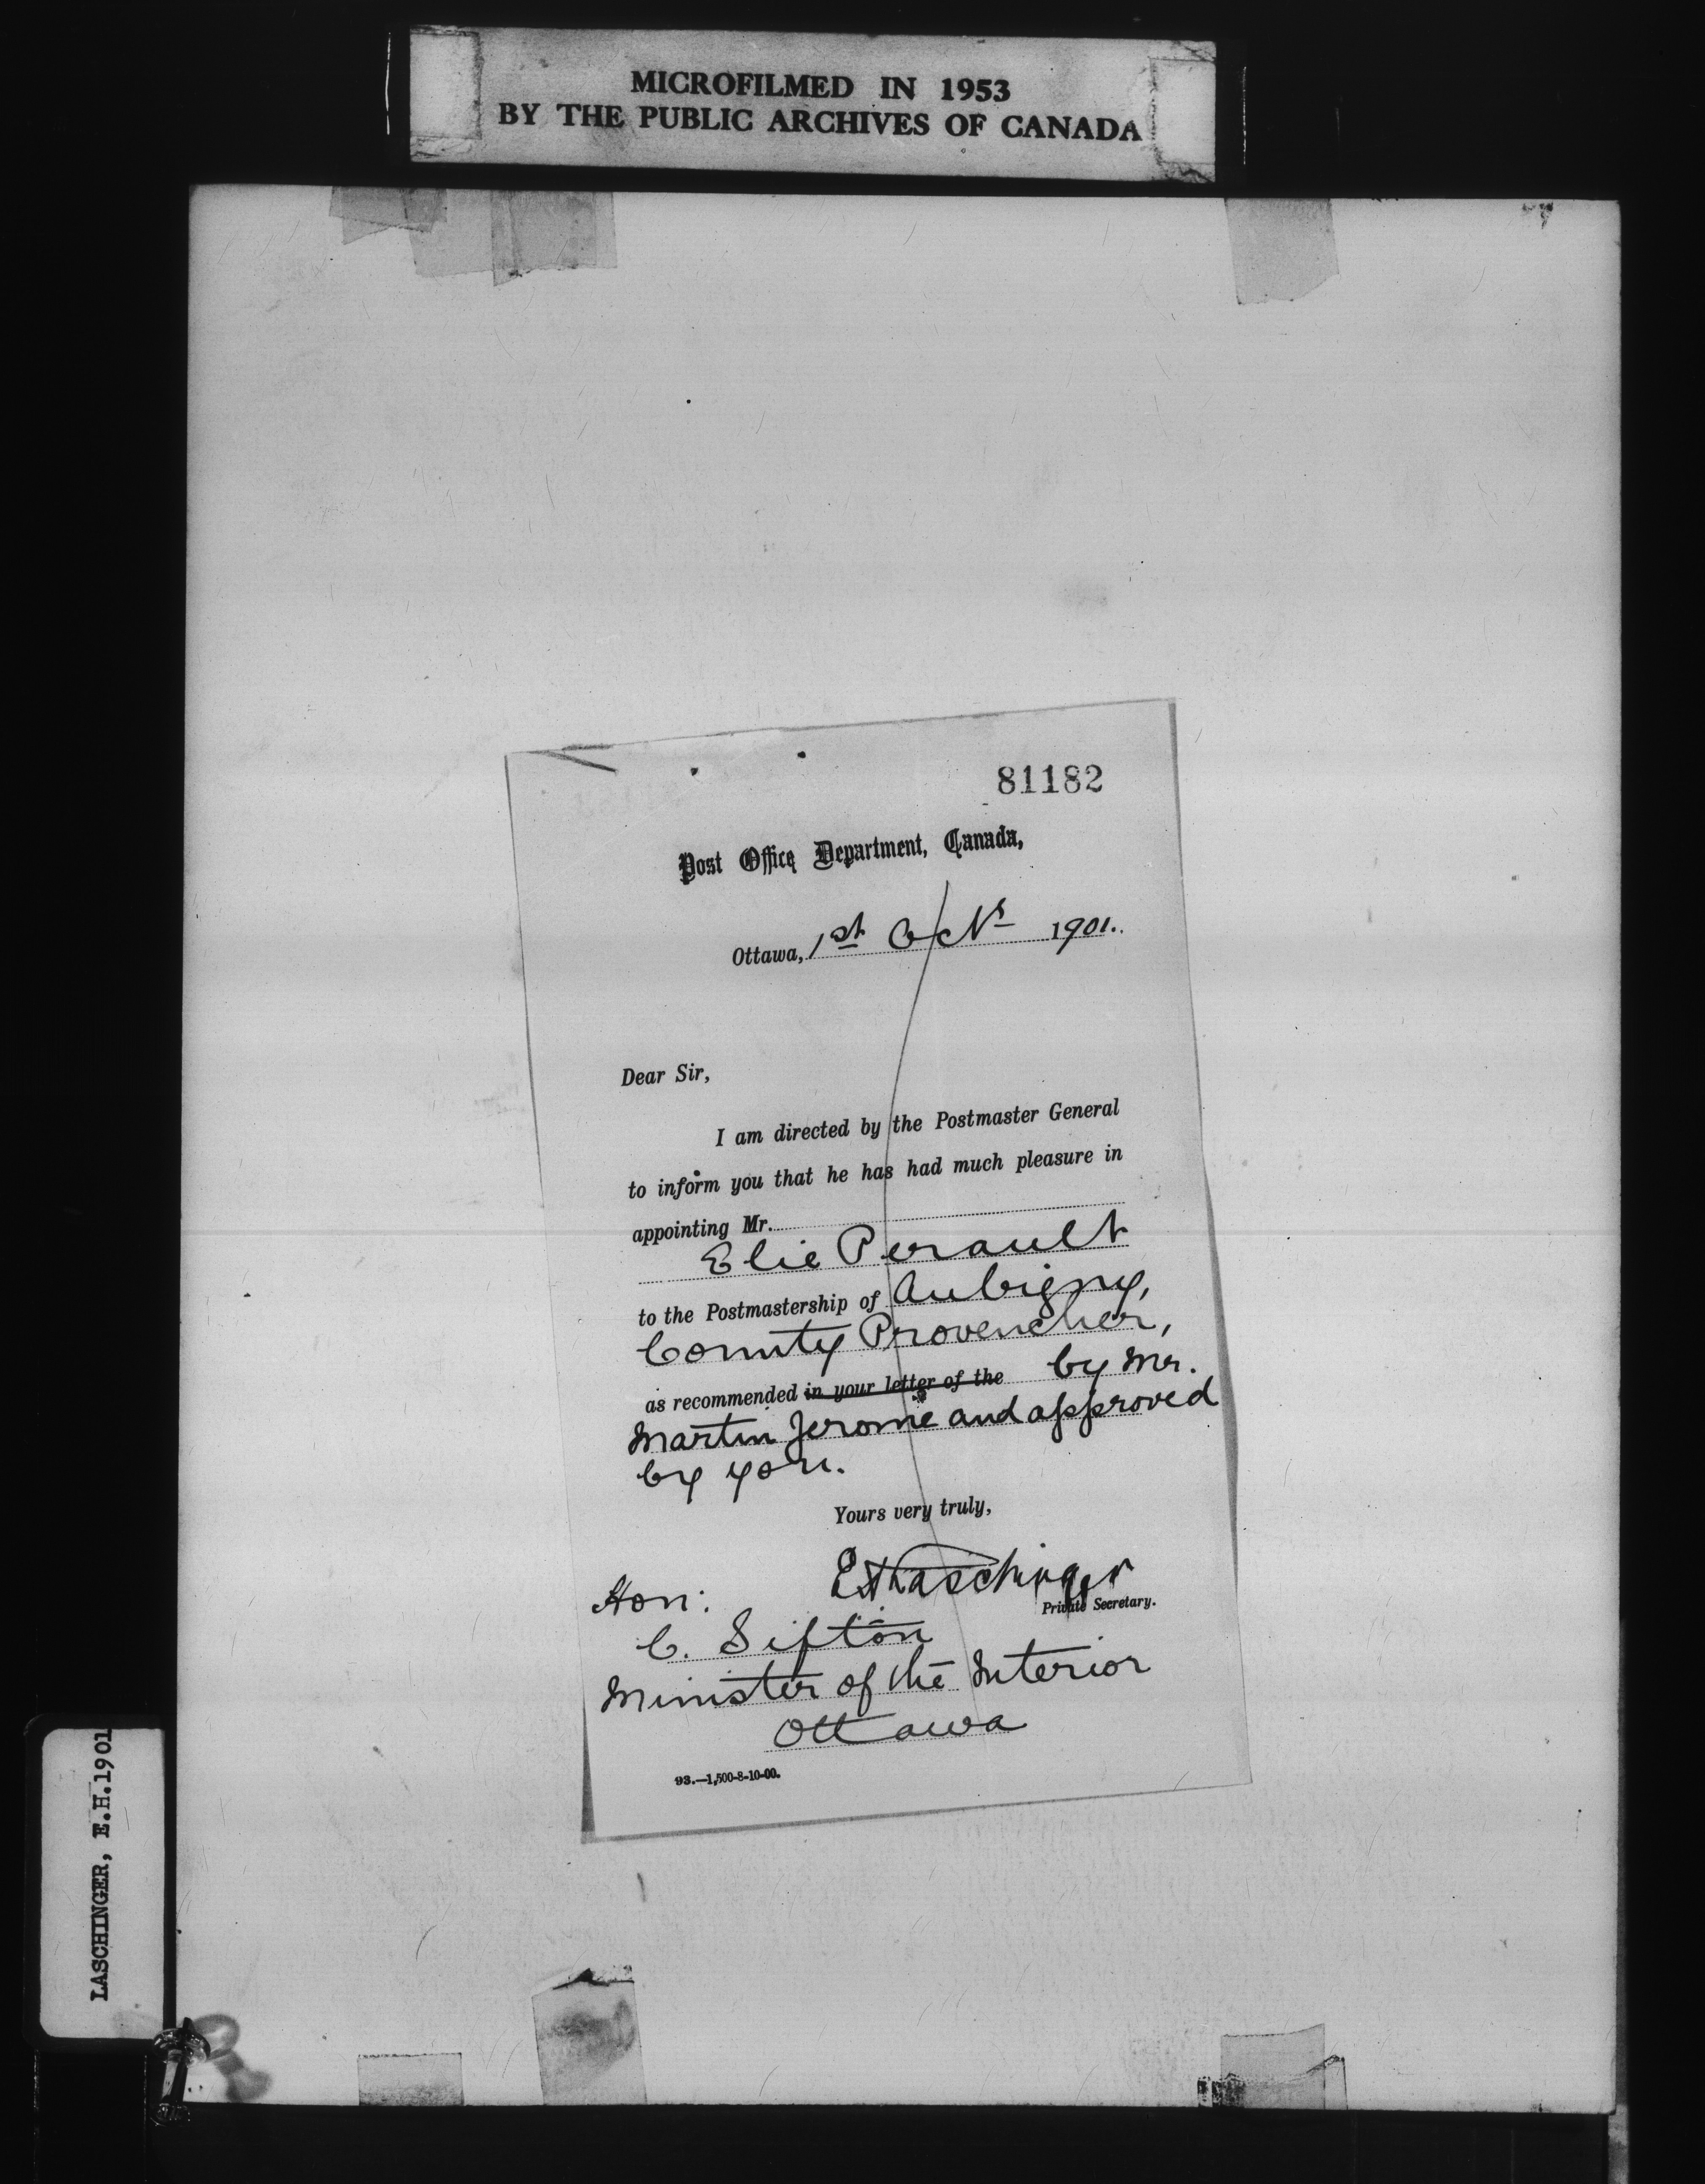 MICROFILMED IN 1953
BY THE PUBLIC ARCHIVES OF CANADA
81182
Post Office Department, Canada,
Ottawa, 1st Octr 1901.
Dear Sir,
I am directed by the Postmaster General
to inform you that he has had much pleasure in
appointing Mr.
Elie Perault
to the Postmastership of Aubigny,
County Provencher,
as recommended in your letter of the by Mr.
Martin Jerome and approved
by you.
Yours very truly,
E H Laschinger
Private Secretary.
Hon:
C. Sifton
Minister of the Interior
Ottawa
93.—1,500-8-10-00.
LASCHINGER, E.H.1901